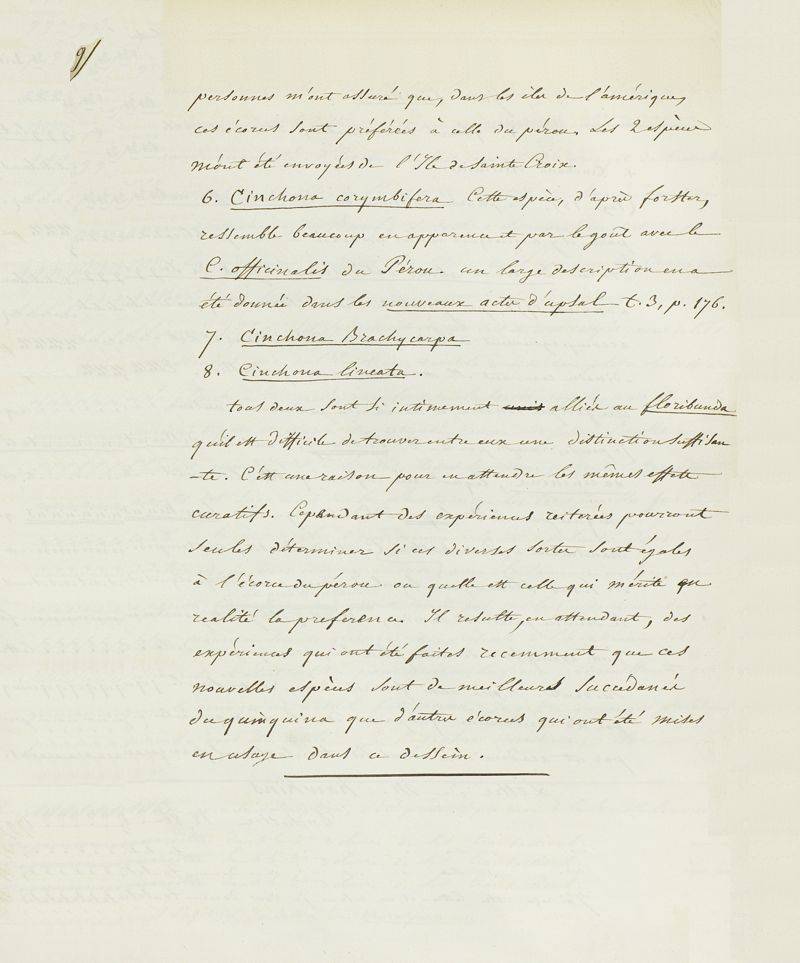 9/
personnes m'ont assuré que, dans les iles de l'amérique,
ces écorces sont préférées à celle du pérou. Les 2 espèces
m'ont été envoyées de l'Ile de Sainte Croix.
6. Cinchona corymbifera Cette espèce, d'après forster,
ressemble beaucoup en apparence et par le goût avec le
C. officinalis du Pérou. un large description en a
été donnée dans les nouveaux actes d'upsal t. 3, p. 176.
7. Cinchona Brachycarpa
8. Cinchona lineata.
tous deux sont si intimement unis alliés au floribunda
qu'il est difficile de trouver entre eux une distinction suffisan
-te. C'est une raison pour en attendre les mêmes effets
curatifs. Cependant des expériences reiterées pourront
seules déterminer si ces diverses sortes sont égales
à l'écorce du pérou ou quelle est celle qui mérite en
realité la preference. Il resulte, en attendant, des
expériences qui ont été faites recemment que ces
nouvelles espèces sont de meilleurs succédanés
du quinquina que d'autres écorces qui ont été mises
en usage dans ce dessein.